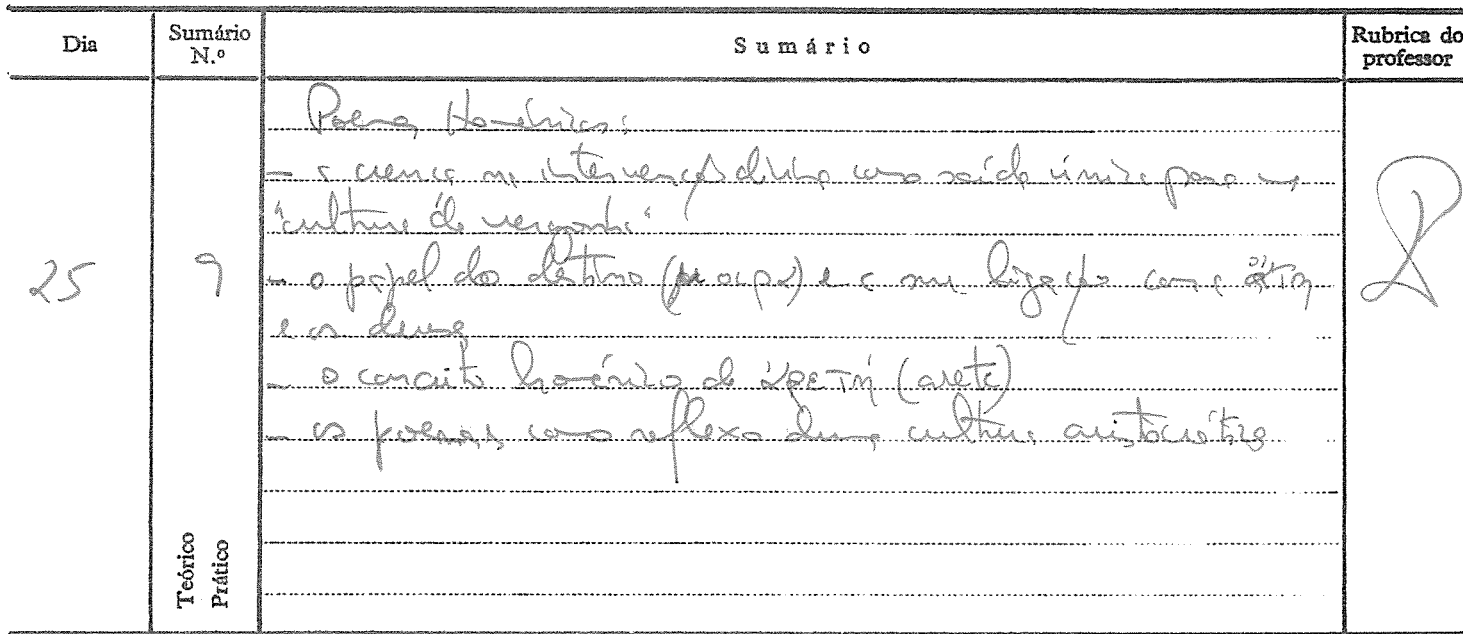 Dia
Sumário N.º
Sumário
Rubrica do professor
Poemas Homéricos:
- a crença na intervenção divina como saída única para uma
"cultura de vergonha"
25
9
- o papel do destino (μοιρα) e a sua ligação com a ἄτη
e os deuses
- o conceito homérico de ἀρετή (arete)
- os poemas como reflexo duma cultura aristocrática
Teórico
Prático